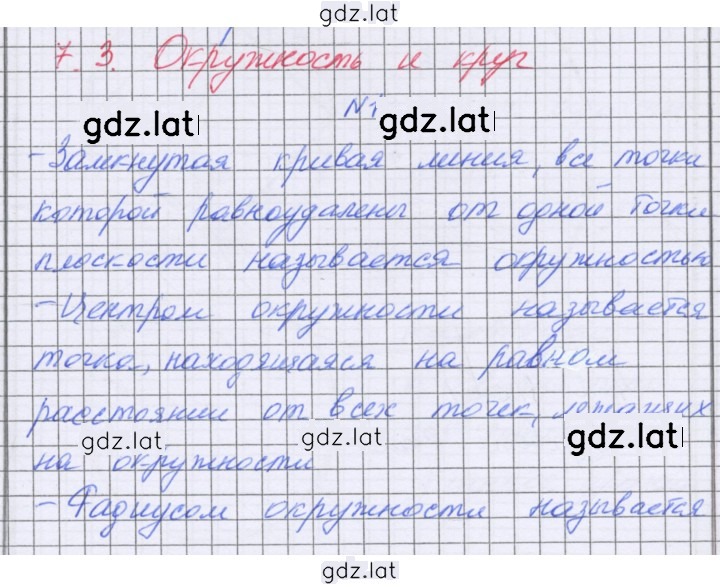 gdz.lat
7.3. Окружность и круг
№1
gdz.lat gdz.lat
-Замкнутая кривая линия, все точки
которой равноудалены от одной точки
плоскости называется окружностью
-Центром окружности называется
точка, находящаяся на равном
расстоянии от всех точек,
gdz.lat gdz.lat gdz.lat
на окружности
-Радиусом окружности называется
gdz.lat